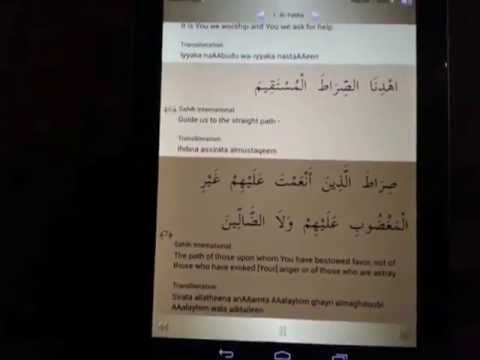 1. Al-Fatiha
It is You we worship and You we ask for help.
Transliteration
Iyyaka naAAbudu wa-iyyaka nastaAAeen
اهْدِنَا الصِّرَاطَ الْمُسْتَقِيمَ
Sahih International
Guide us to the straight path -
Transliteration
Ihdina assirata almustaqeem
صِرَاطَ الَّذِينَ أَنْعَمْتَ عَلَيْهِمْ غَيْرِ
الْمَغْضُوبِ عَلَيْهِمْ وَلَا الضَّالِّينَ
Sahih International
The path of those upon whom You have bestowed favor, not of
those who have evoked [Your] anger or of those who are astray.
Transliteration
Sirata allatheena anAAamta AAalayhim ghayri almaghdoobi
AAalayhim wala addalleen